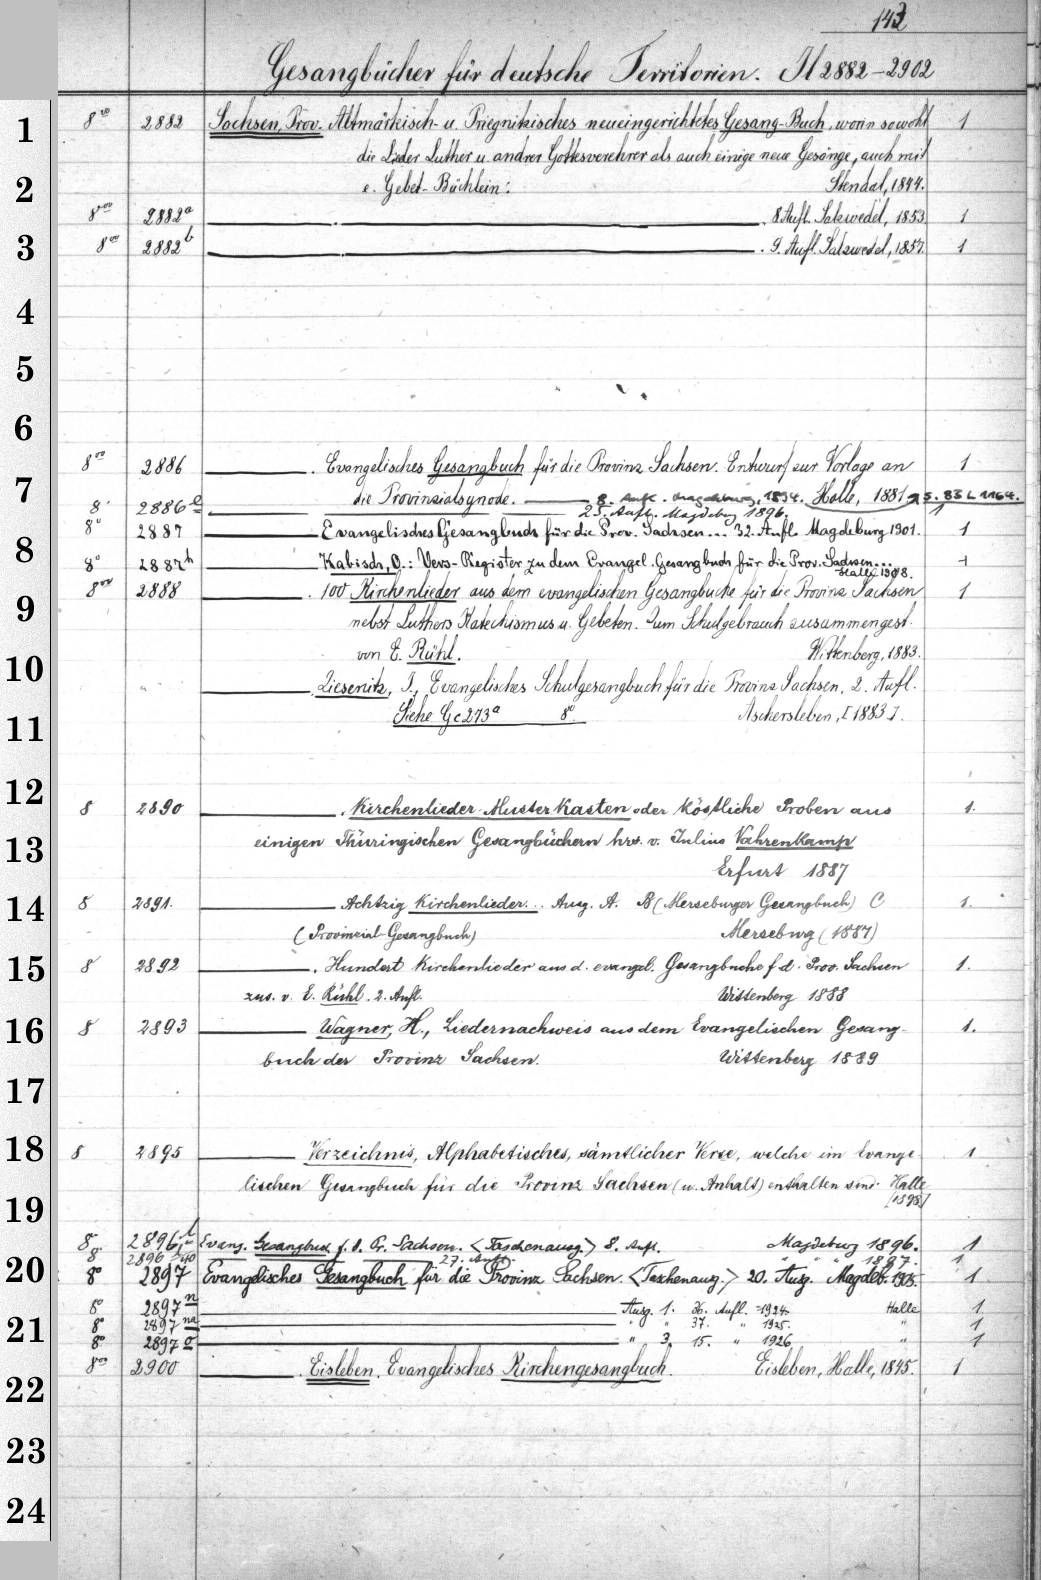 143
Gesangbücher für deutsche Territorien. H 2882-2902
1 8vo 2882 Sachsen, Prov. Altmärkisch- u. Priegnitzisches neueingerichtetes Gesang-Buch, worin sowohl 1
die Lieder Luther u. andrer Gottesverehrer als auch einige neue Gesänge, auch mit
2 e. Gebet-Büchlein: Stendal, 1844.
8vo 2882a 8. Aufl. Salzwedel, 1853. 1
3 8vo 2882b 9. Aufl. Salzwedel, 1857. 1
4
5
6
8vo 2886 Evangelisches Gesangbuch für die Provinz Sachsen. Entwurf zur Vorlage an 1
7 die Provinzialsynode. Halle, 1881
8. Aufl. Magdeburg, 1894. S. 83 L 1164.
8° 2886 25. Aufl. Magdeburg 1896. 1
8° 2887 Evangelisches Gesangbuch für die Prov. Sachsen... 32. Aufl. Magdeburg 1901. 1
8
8° 2887h Kabisch, O.: Vers-Register zu dem Evangel. Gesangbuch für die Prov. Sachsen... 1
Halle 1908.
8vo 2888 100 Kirchenlieder aus dem evangelischen Gesangbuche für die Provinz Sachsen 1
9 nebst Luthers Katechismus u. Gebeten. Zum Schulgebrauch zusammengest.
von E. Rühl. Wittenberg, 1883.
10 Liesenitz, J., Evangelisches Schulgesangbuch für die Provinz Sachsen, 2. Aufl.
Siehe Gc 273a 8° Aschersleben, [1883].
11
12 8 2890 Kirchenlieder-Musterkasten oder köstliche Proben aus 1.
13 einigen Thüringischen Gesangbüchern hrs. v. Julius Vahrenkamp
Erfurt 1887
14 8 2891. Achtzig Kirchenlieder... Ausg. A. B (Merseburger Gesangbuch) C 1.
(Provinzial-Gesangbuch) Merseburg (1887)
15 8 2892 Hundert Kirchenlieder aus d. evangel. Gesangbuche f d. Prov. Sachsen 1.
zus. v. E. Rühl. 2. Aufl. Wittenberg 1888
16 8 2893 Wagner, H., Liedernachweis aus dem Evangelischen Gesang- 1.
buch der Provinz Sachsen. Wittenberg 1889
17
18 8 2895 Verzeichnis, Alphabetisches, sämtlicher Verse, welche im Evange 1
lischen Gesangbuch für die Provinz Sachsen (u. Anhalt) enthalten sind. Halle
[1898]
19
8° 2896 Evang. Gesangbuch f. d. Pr. Sachsen. <Taschenausg.> 8. Aufl. Magdeburg 1896. 1
8° 2896 27. Aufl. " " 1897. 1
20 8° 2897 Evangelisches Gesangbuch für die Provinz Sachsen. <Taschenausg.> 20. Ausg. Magdeb. 1905. 1
8° 2897n Ausg. 1. 36. Aufl. 1924. Halle 1
21 8° 2897na " " 37. " 1925. " 1
8° 2897o " 3. 15. " 1926 " 1
8vo 2900 Eisleben. Evangelisches Kirchengesangbuch. Eisleben, Halle, 1845. 1
22
23
24